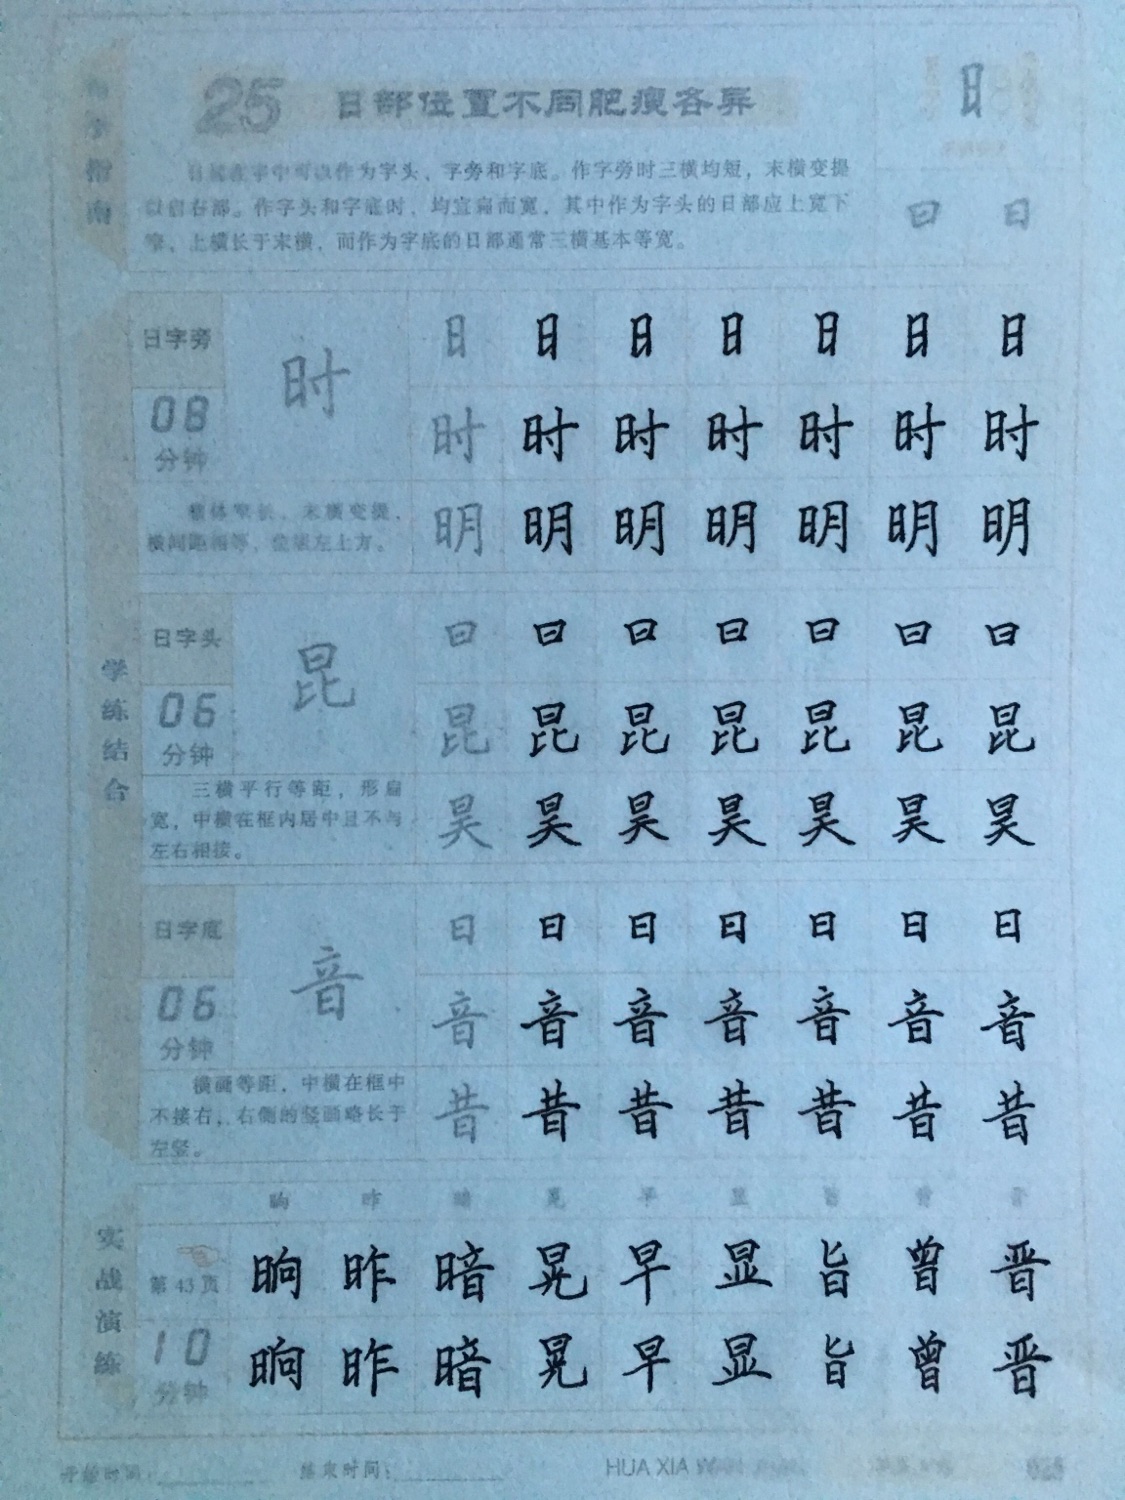 写字指南
25 日部位置不同肥瘦各异
日
日部在字中可以作为字头、字旁和字底。作字旁时三横均短，末横变提
以留右部。作字头和字底时，均宜扁而宽，其中作为字头的日部应上宽下
窄，上横长于末横，而作为字底的日部通常三横基本等宽。
日 日
学练结合
日字旁
08
分钟
时
整体窄长，末横变提，
横间距相等，位靠左上方。
日 日 日 日 日 日 日
时 时 时 时 时 时 时
明 明 明 明 明 明 明
日字头
06
分钟
昆
三横平行等距，形扁
宽，中横在框内居中且不与
左右相接。
日 日 日 日 日 日 日
昆 昆 昆 昆 昆 昆 昆
昊 昊 昊 昊 昊 昊 昊
日字底
06
分钟
音
横画等距，中横在框中
不接右，右侧的竖画略长于
左竖。
日 日 日 日 日 日 日
音 音 音 音 音 音 音
昔 昔 昔 昔 昔 昔 昔
实战演练
晌 昨 暗 晃 早 显 旨 曾 晋
第43页
10
分钟
晌 昨 暗 晃 早 显 旨 曾 晋
晌 昨 暗 晃 早 显 旨 曾 晋
开始时间：
结束时间：
HUA XIA